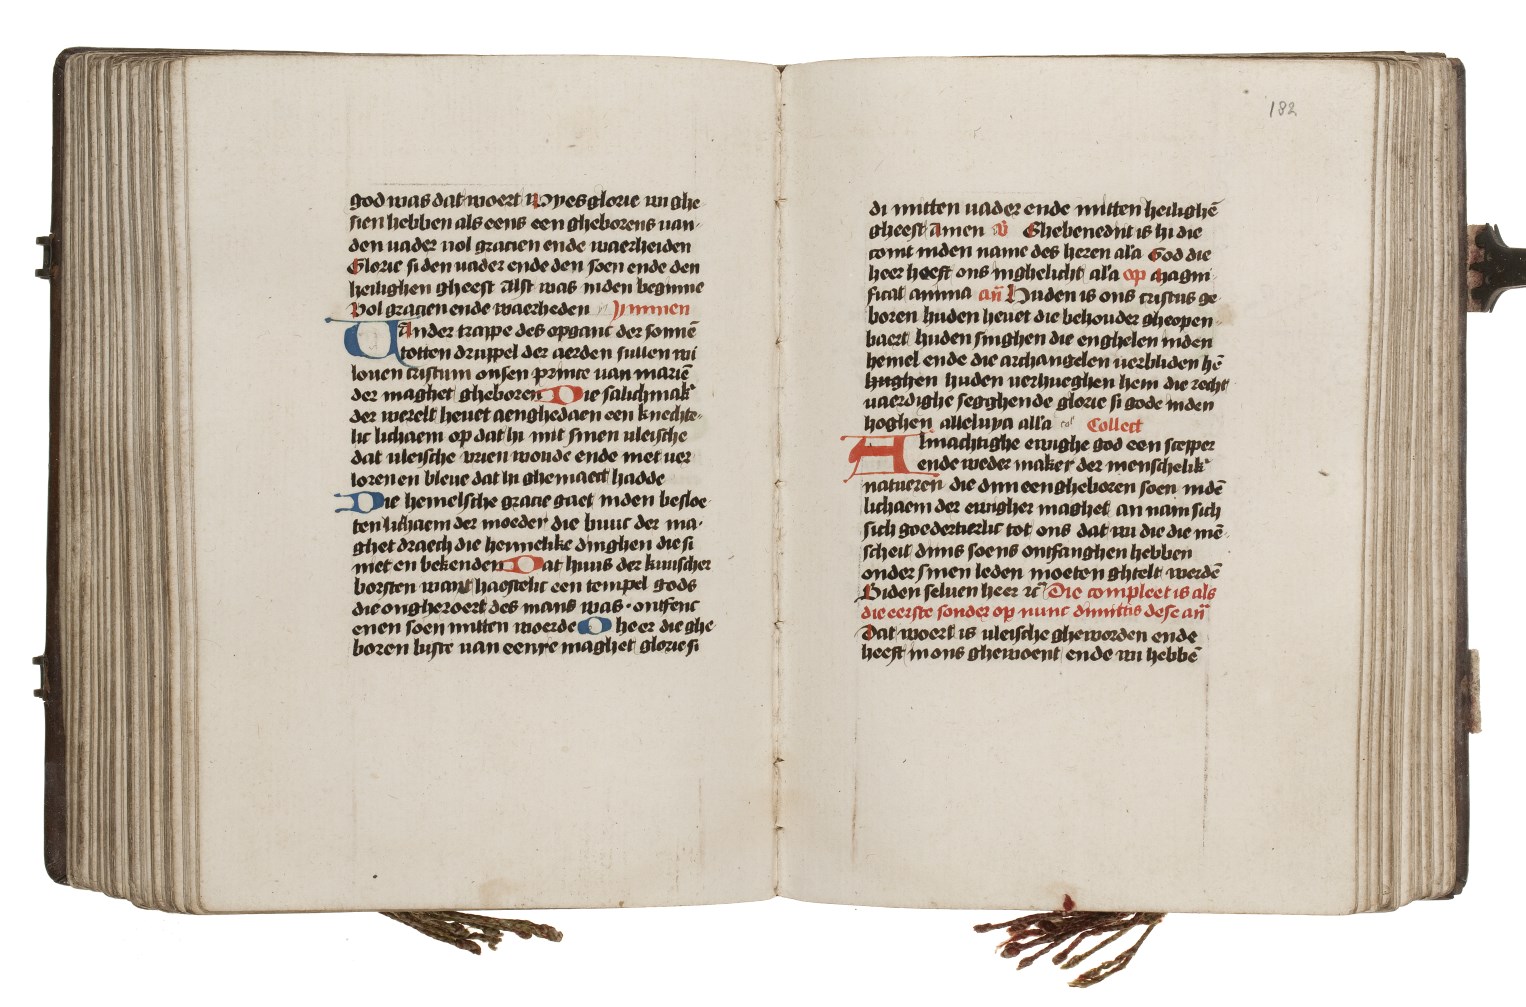 god was dat woert Wyes glorie wi ghe
sien hebben als eens een gheborens van
den vader vol gracien ende waerheiden
Glorie si den vader ende den soen ende den
heilighen gheest Alst was inden beginne
Vol gracien ende waerheden Ymnien
Vander trappe des opganc der sonnē
totten druppel der aerden sullen wi
loven cristum onsen prince van mariē
der maghet gheboren Die salichmak
der werelt hevet aenghedaen een knechte
lic lichaem op dat hi mit sinen vleische
dat vleische vrien woude ende niet ver
loren en bleve dat hi ghemaect hadde
Die hemelsche gracie gaet inden besloe
ten lichaem der moeder die buuc der ma
ghet draech die heymelike dinghen die si
niet en bekenden Dat huus der kuuscher
borsten wart haestelic een tempel gods
die ongheroert des mans was ontfenc
enen soen mitten woerde O heer die ghe
boren biste van eenre maghet glorie si
182
di mitten vader ende mitten heilighē
gheest Amen v̄ Ghebenedit is hi die
comt inden name des heren al'a God die
heer heeft ons inghelicht al'a op Magni
ficat anima an̄ Huden is ons cristus ge
boren huden hevet die behouder gheopen
baert huden singhen die enghelen inden
hemel ende die archangelen verbliden hē
hughen huden verhueghen hem die recht
vaerdighe segghende glorie si gode inden
hoghen alleluya all'a Collect
Almachtighe ewighe god een scepper
ende weder maker der menschelik
natueren die dinen eengheboren soen indē
lichaem der ewigher maghet an nam sich
sich goedertierlic tot ons dat wi die die mē
scheit dinis soens ontfanghen hebben
onder sinen leden moeten ghtelt werdē
Biden selven heer rc̄ Die compleet is als
die eerste sonder op nunc dimittis dese an̄
Dat woert is vleische gheworden ende
heeft in ons ghewoent ende wi hebbē